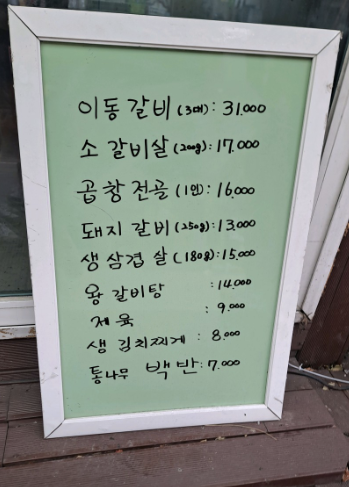 이동갈비(3대): 31.000
소 갈비살(200g): 17.000
곱창전골(1인): 16.000
돼지 갈비(250g): 13.000
생삼겹 살(180g): 15.000
왕 갈비탕 : 14.000
제육 : 9.000
생 김치찌게 : 8.000
통나무 백반: 7.000